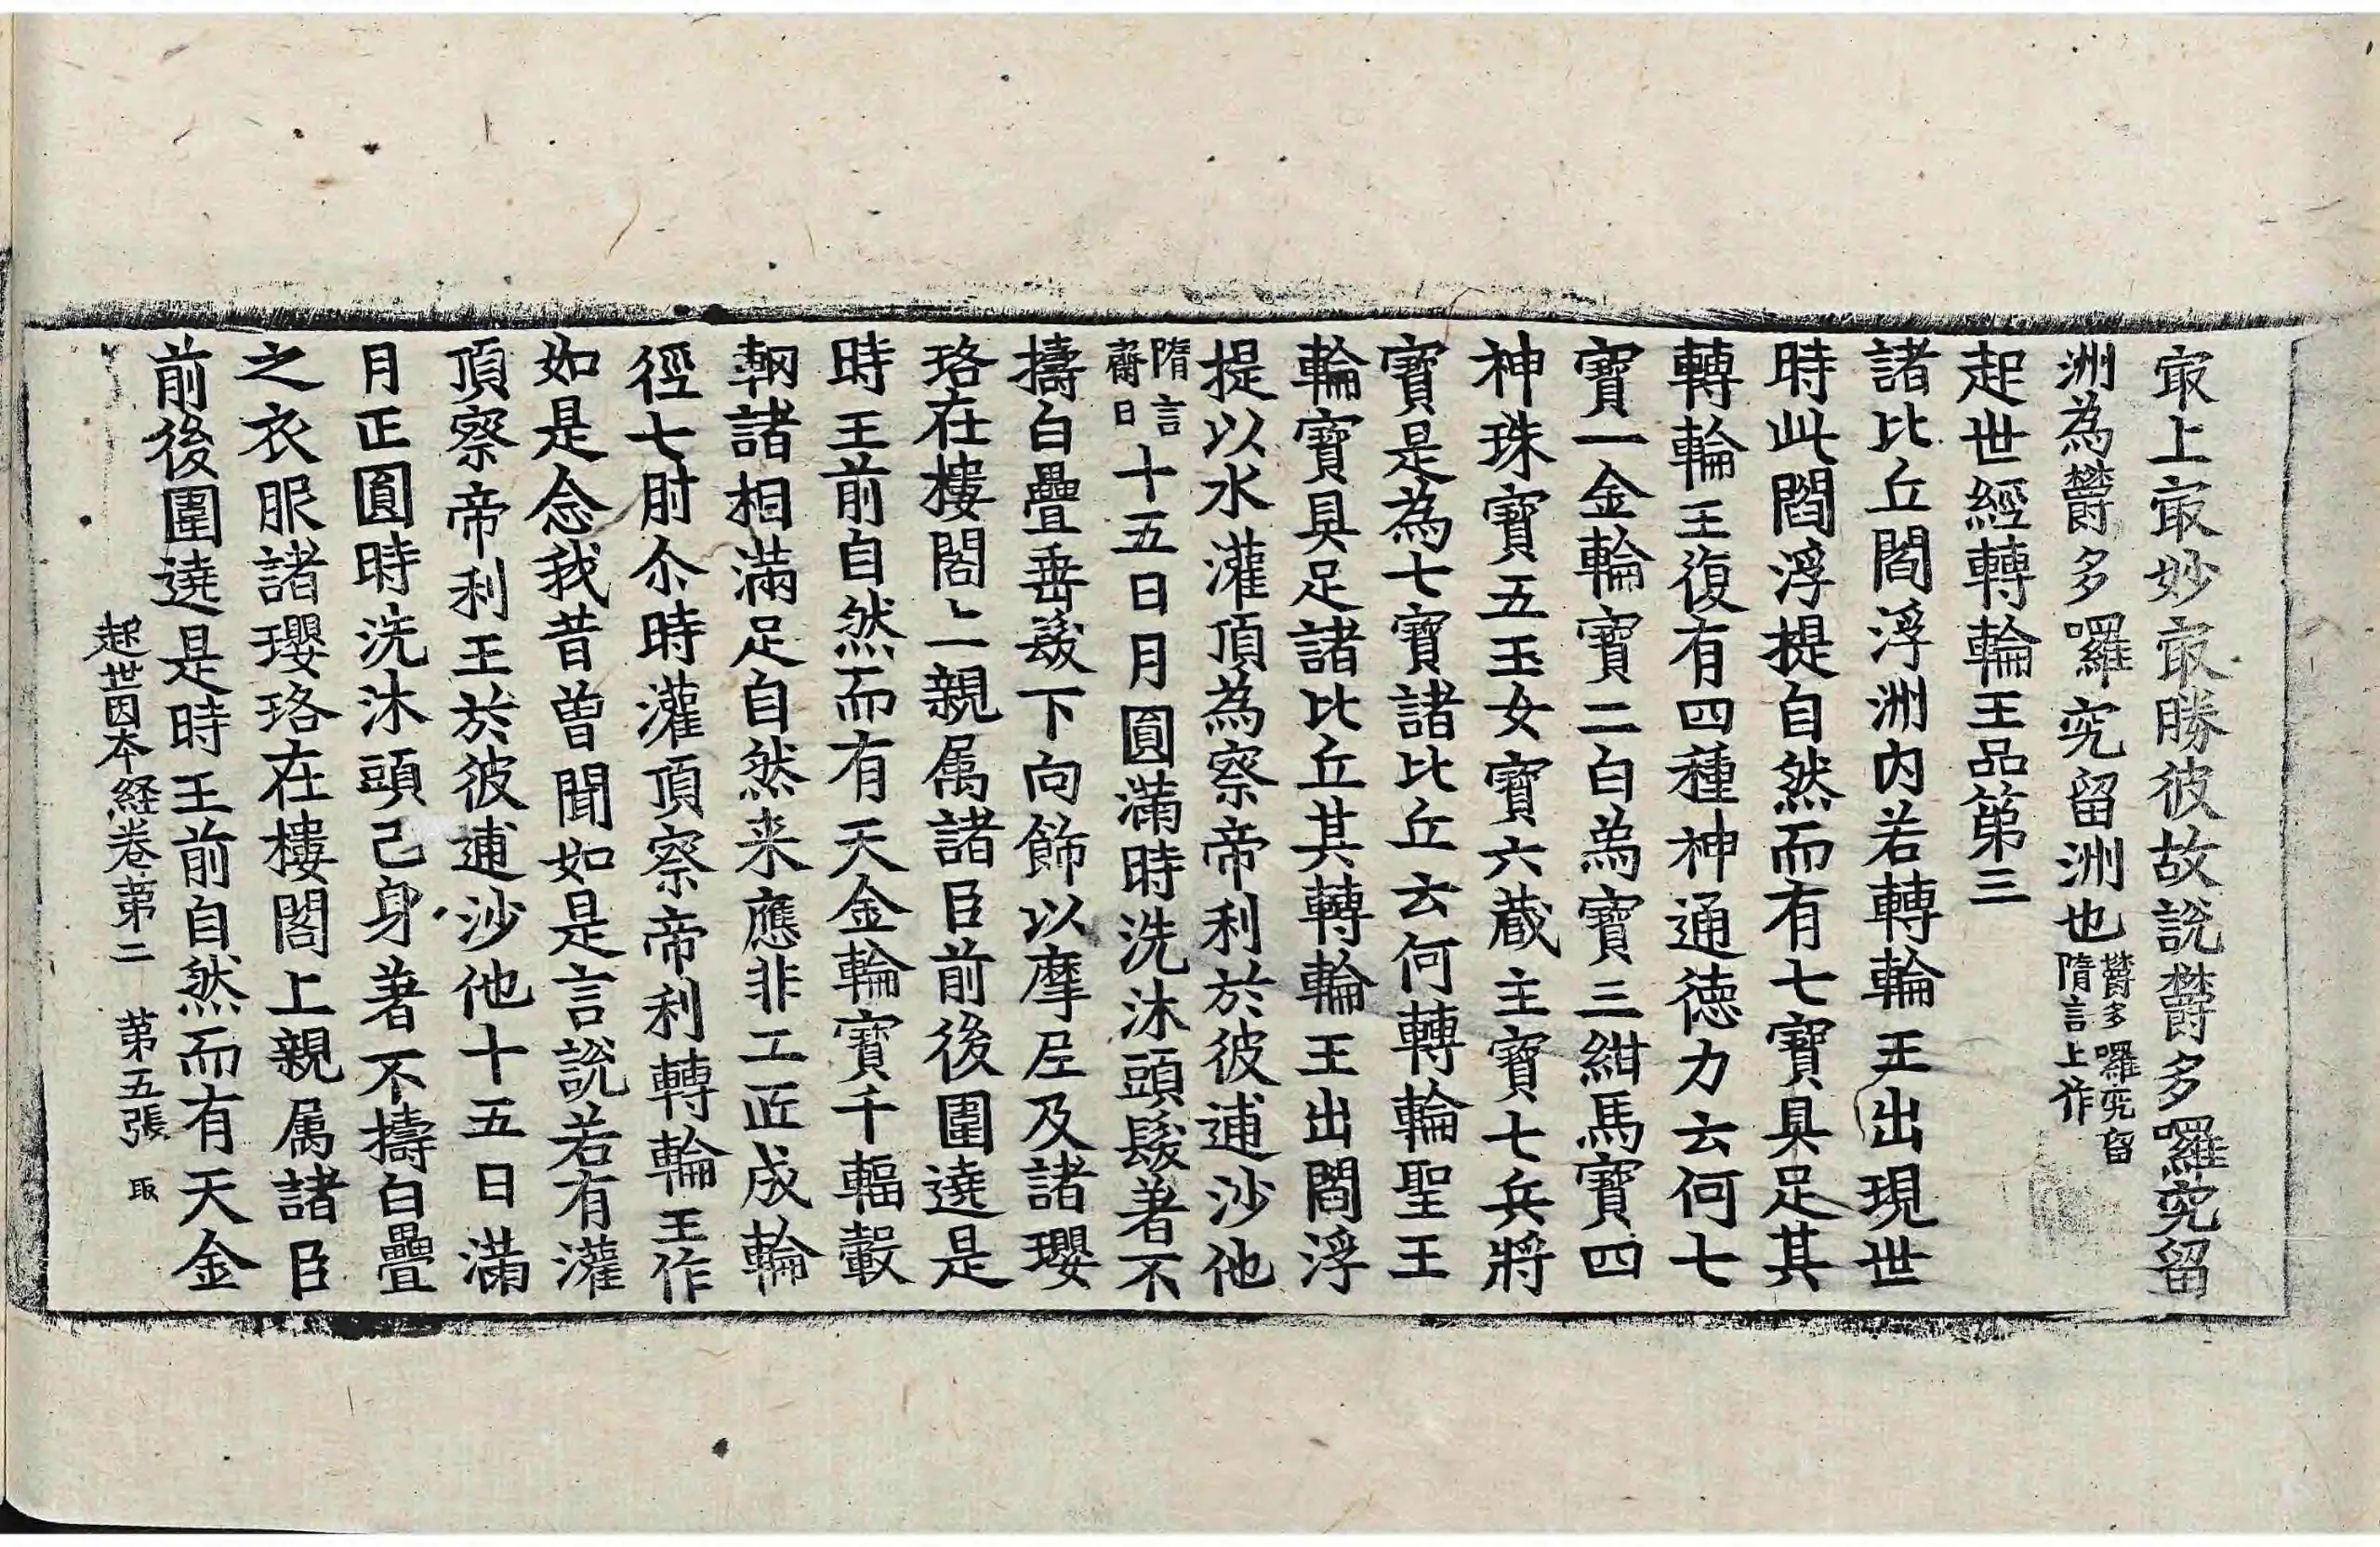 㝡上㝡妙㝡勝彼故說欝多囉究留
洲為欝多囉究留洲也欝多囉究留隋言上作
起世經轉輪王品第三
諸比丘閻浮洲內若轉輪王出現世
時此閻浮提自然而有七寶具足其
轉輪王復有四種神通德力云何七
寶一金輪寶二白為寶三紺馬寶四
神珠寶五玉女寶六藏主寶七兵將
寶是為七寶諸比丘云何轉輪聖王
輪寶具足諸比丘其轉輪王出閻浮
提以水灌頂為察帝利於彼逋沙他
隋言齋日十五日月圓滿時洗沐頭髮著不
擣白疊垂髮下向飾以摩尼及諸瓔
珞在樓閣上親属諸臣前後圍遶是
時王前自然而有天金輪寶千輻轂
輞諸相滿足自然来應非工匠成輪
徑七肘尒時灌頂察帝利轉輪王作
如是念我昔曾聞如是言說若有灌
頂察帝利王於彼逋沙他十五日滿
月正圓時洗沐頭己身著不擣白疊
之衣服諸瓔珞在樓閣上親属諸臣
前後圍遶是時王前自然而有天金
起世因本経卷第二 第五張 取